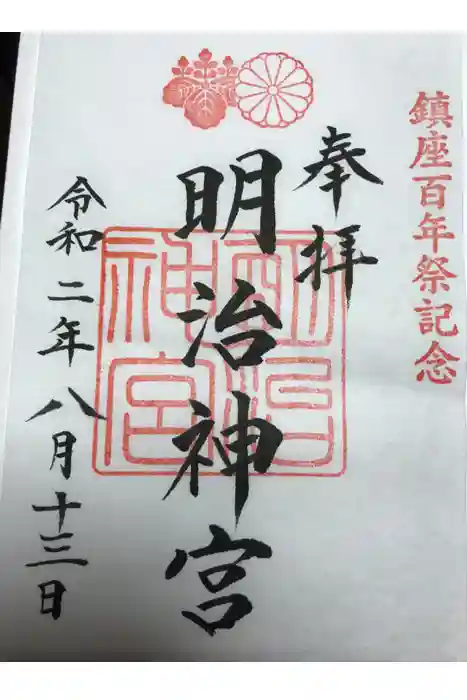 鎮座百年祭記念
奉拝
明治神宮
明治神宮
令和二年八月十三日